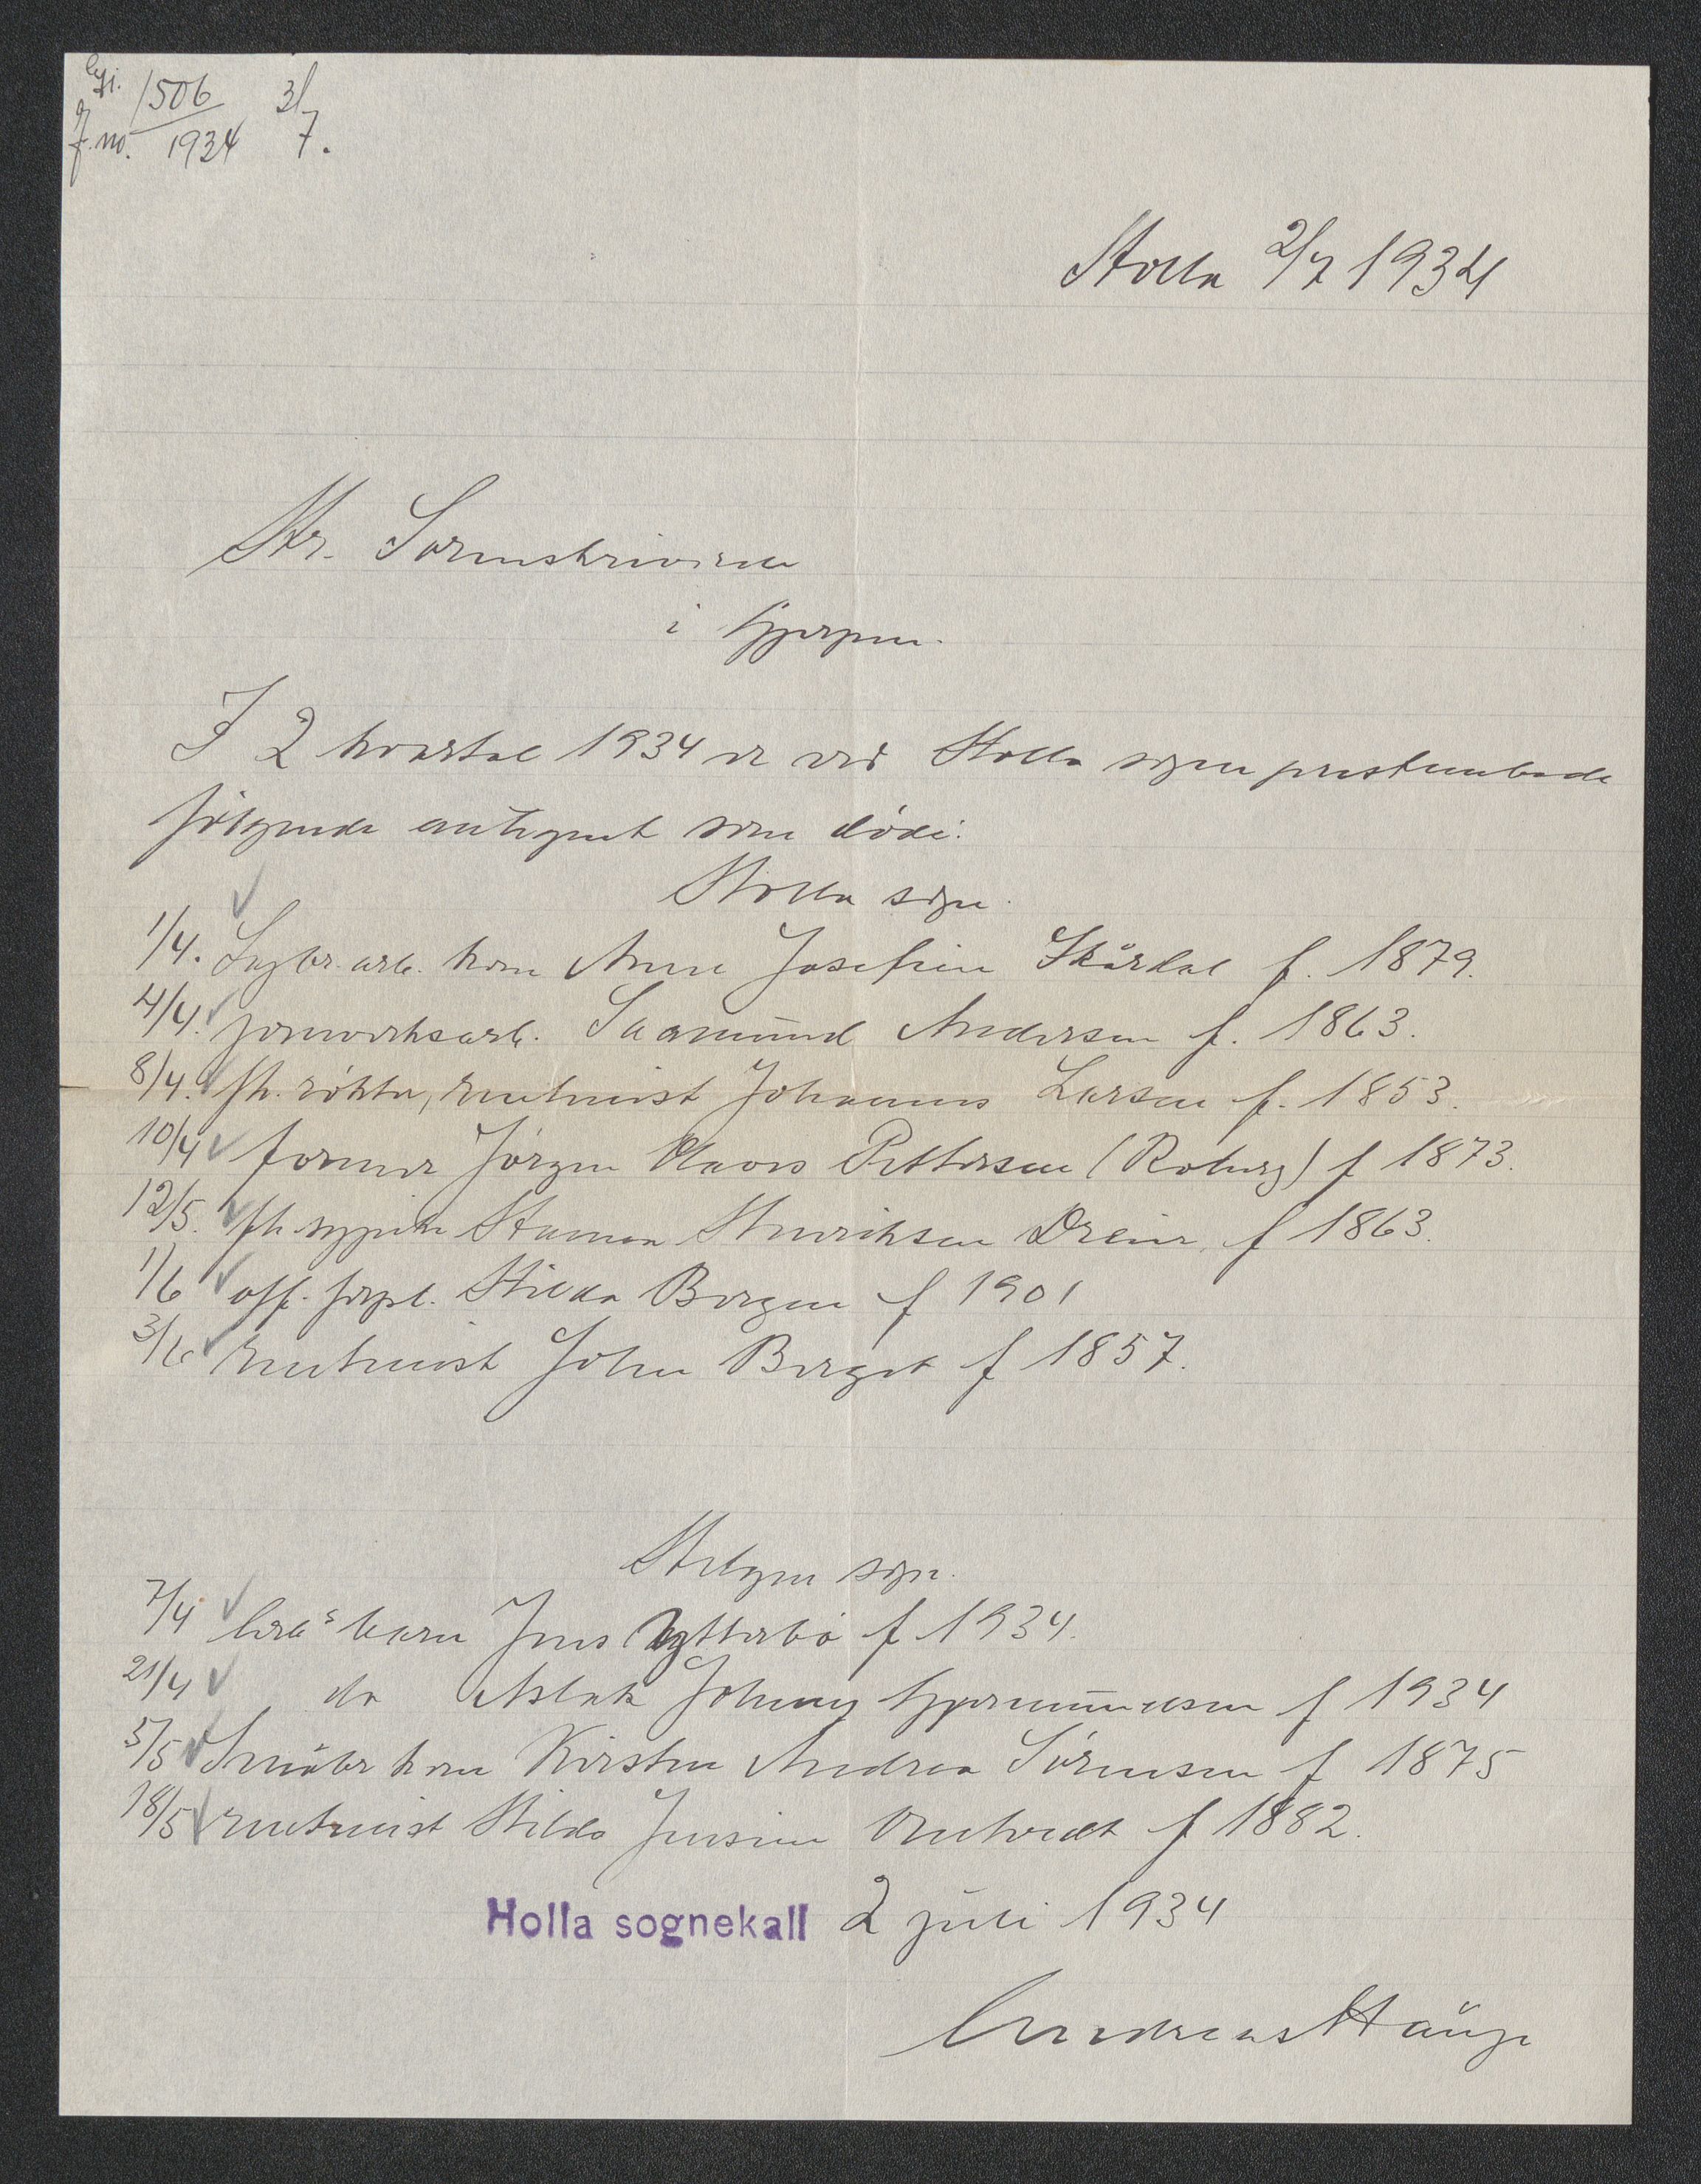 J.no. 1506/1934 3/7.
Holla 2/7 1934
Hr. Sorenskriveren
i Gjerpen.
I 2 kvartal 1934 er ved Holla sogneprestembede
følgende antegnet som døde:
Holla sogn.
1/4. Sagbr. arb. kone Anne Josefine Skårdal f. 1879.
4/4. jernverksarb. Saamund Andersen f. 1863.
8/4. fh. røkter, rentenist Johannes Larsen f. 1853.
10/4 former Jørgen Klaves Pettersen (Roberg) f 1873.
12/5. fh. Hanna Henriksen f 1863.
1/6 off. forpl. Hilda Borgen f 1901
3/6 rentenist John Berget f 1857.
Helgen sogn.
7/4 arbs barn Jens Ytterbø f 1934.
21/4 do Aslak Johnny Gjermundsen f 1934
5/5 Småbr kone Kirsten Andrea Sørensen f 1875
18/5 rentenist Hilda Jensine Ventvedt f 1882.
Holla sognekall 2 juli 1934
Andreas Hauge